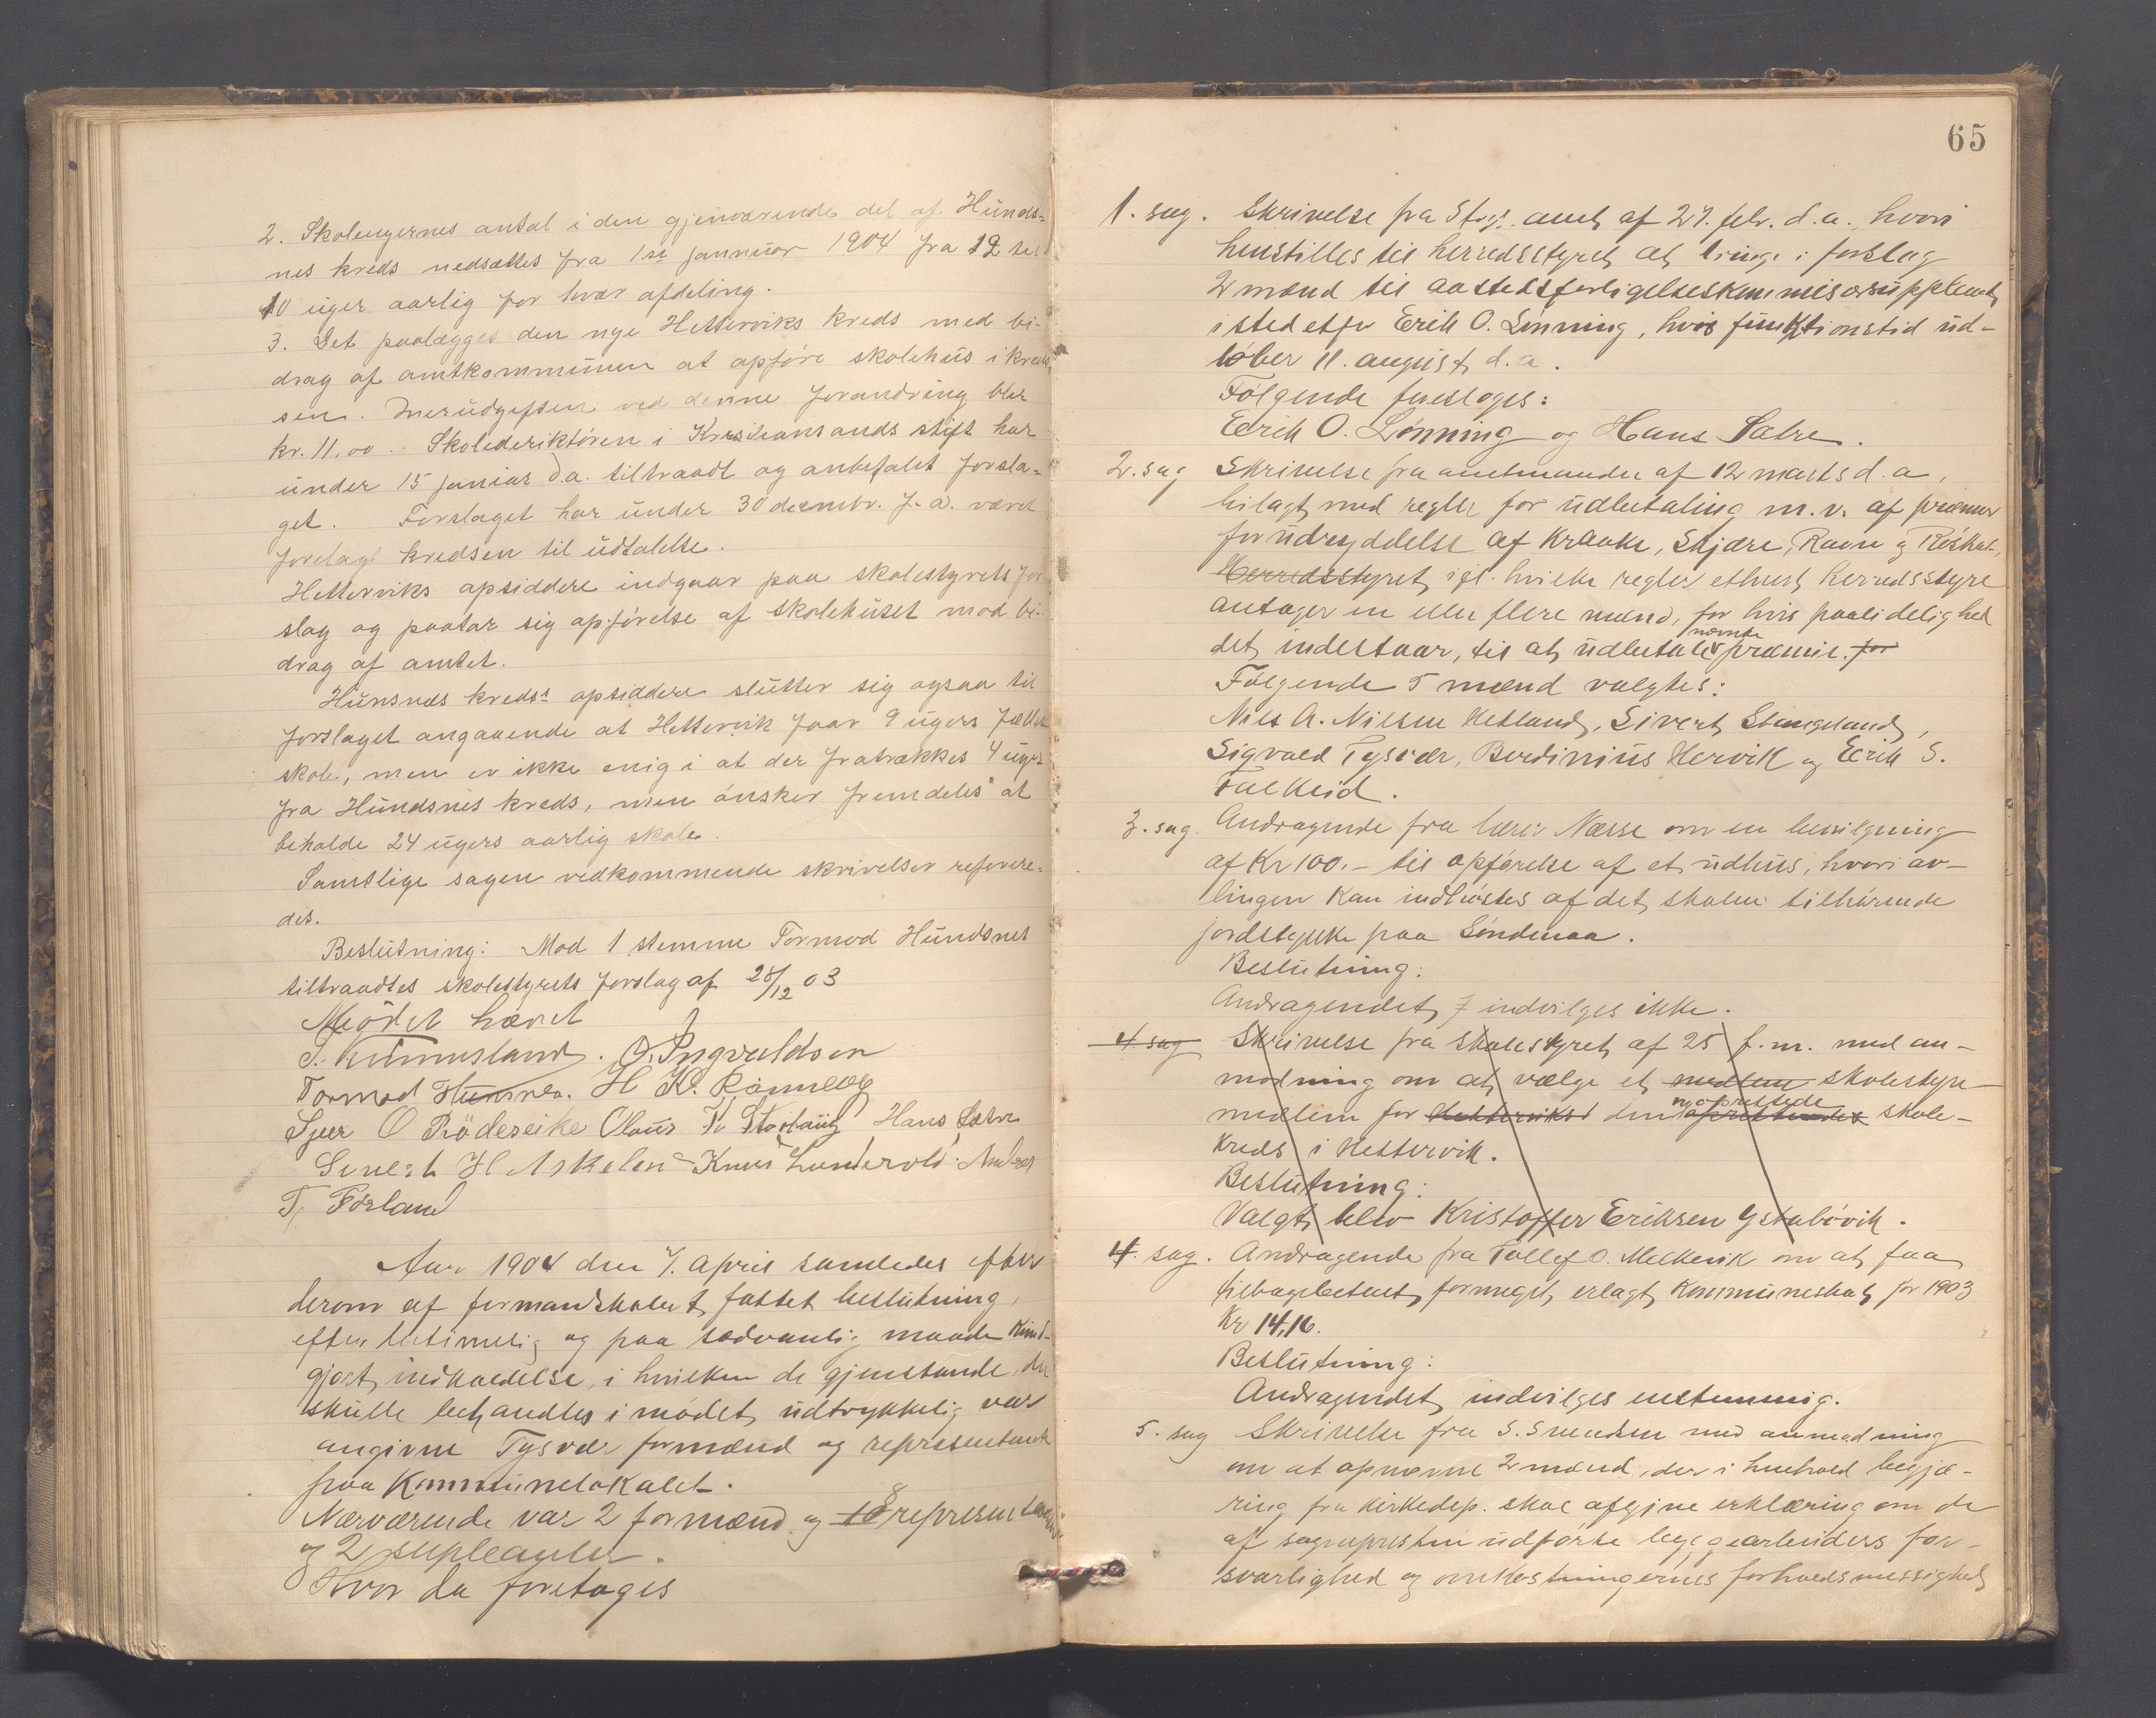 2. Skoleugernes antal i den gjenværende del af Hunds=
nes kreds nedsættes fra 1ste januar 1904 fra 12 til
10 uger aarlig for hver afdeling.
3. Det paalægges den nye Hetterviks kreds med bi-
drag af amtkommunen at opføre skolehus i kred-
sen. Merudgiften ved denne forandring blir
kr. 11,00. Skolederiktøren i Kristiansands stift har
under 15 januar d.a. tiltraadt og anbefalet forsla=
get. Forslaget har under 30 decmbr. f. a. været
forelagt kredsen til udtalelse.
Hetterviks opsiddere indgaar paa skolestyrets for-
slag og paatar sig opførelse af skolehuset mod bi-
drag af amtet.
Hunsnæs kreds's opsiddere slutter sig ogsaa til
forslaget angaaende at Hettervik faar 9 ugers fælles
skole, men er ikke enig i at der fratrækkes 4 uger
fra Hundsnes kreds, men ønsker fremdeles at
beholde 24 ugers aarlig skole.
Samtlige sagen vedkommende skrivelser refere-
des.
Beslutning: Mod 1 stemme Tormod Hundsnes
tiltraadtes skolestyrets forslag af 28/12 03
Mødet hævet
T. Kinnusland. O. Yngvaldsen
Tormod Hunsnes. H K. Rønnevig
Sjur O Rødeseike Olaus K Stoltauig Hans Sætre
Sivert H Askelen Knut Lunderold Andres
T. Førland
Aar 1904 den 7. april samledes efter
derom af formandskabet fattet beslutning,
efter betimelig og paa sædvanlig maade kund-
gjort indkaldelse, i hvilken de gjenstande, der
skulle behandles i mødet udtrykkelig var
angivne Tysvær formænd og representant
paa Kommunelokalet.
Nærværende var 2 formænd og 10 8 representanter
og 2 supleanter.
Hvor da foretoges
65
1. sag. Skrivelse fra Stvgr. amt af 27. febr. d.a., hvori
henstilles til herredsstyret at bringe i forslag
2 mænd til aastedsforligelseskommisærsupplent
isted etfr Erik O. Lønning, hvis funktionstid ud-
løber 11. august d.a.
Følgende foresloges:
Eerik O. Lønning og Hans Sætre.
2. sag Skrivelse fra amtmanden af 12 marts d.a,
bilagt med regler for udbetaling m.v. af præmier
for udryddelse af Kraake, Skjære, Ravn og Røskat,
Herredsstyret, igl. hvilke regler ethvert herredsstyre
antager en eller flere mænd, for hvis paalidelighed
nævnte
det indestaar, til at udbetale præmie. for
Følgende 5 mænd valgtes:
Nils A. Nilsen Hetland, Sivert Stangeland,
Sigvald Tysvær, Berdinius Hervik og Eerik S.
Falkeid.
3. sag. Andragende fra lærer Næsse om en bevilgning
af Kr 100.- til opførelse af et udhus, hvori av-
lingen kan indhøstes af det skolen tilhørende
jordstykke paa Søndenaa.
Beslutning:
Andragendet indvilges ikke.
4. sag Skrivelse fra skolestyret af 25 f.m. med an-
modning om at vælge et medlem skolestyre-
nyoprettede
medlem for Hetterviks den oprettende skole-
kreds i Hettervik.
Beslutning:
Valgt blev Kristoffer Eriksen Ystabøvik.
4. sag. Andragende fra Tollef O. Melkevik om at faa
tilbagebetalt formeget erlagt Kommuneskat for 1903
Kr 14,16.
Beslutning:
Andragendet indvilges enstemmig.
5. sag Skrivelse fra S. Svendsen med anmodning
om at opnævne 2 mænd, der i henhold begjæ-
ring fra Kirkedep. skal afgjive erklæring om de
af sognepresten udførte byggearbeiders for-
svarlighed og omkostningernes forholdsmæssighed